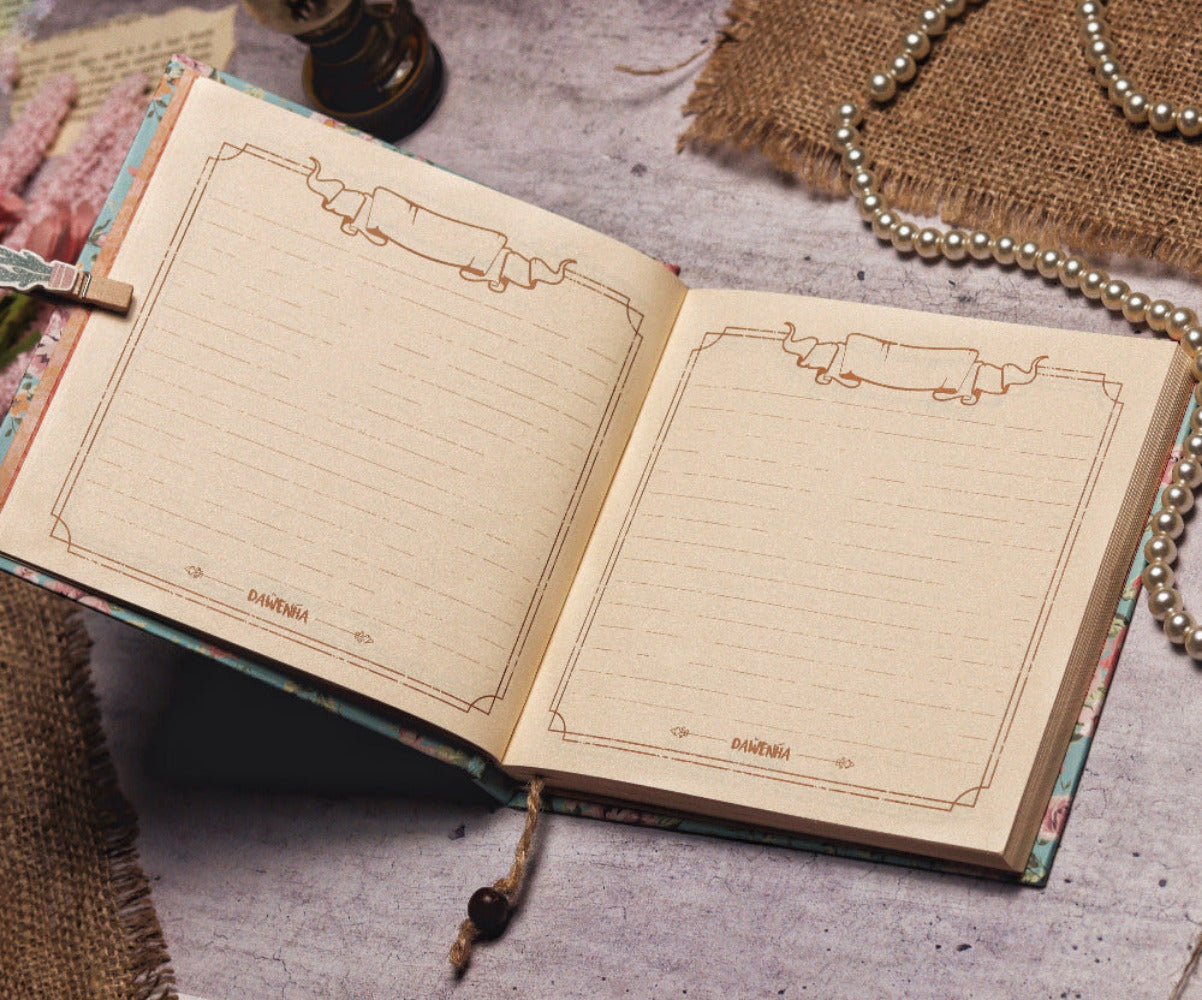 DAWENHA
DAWENHA